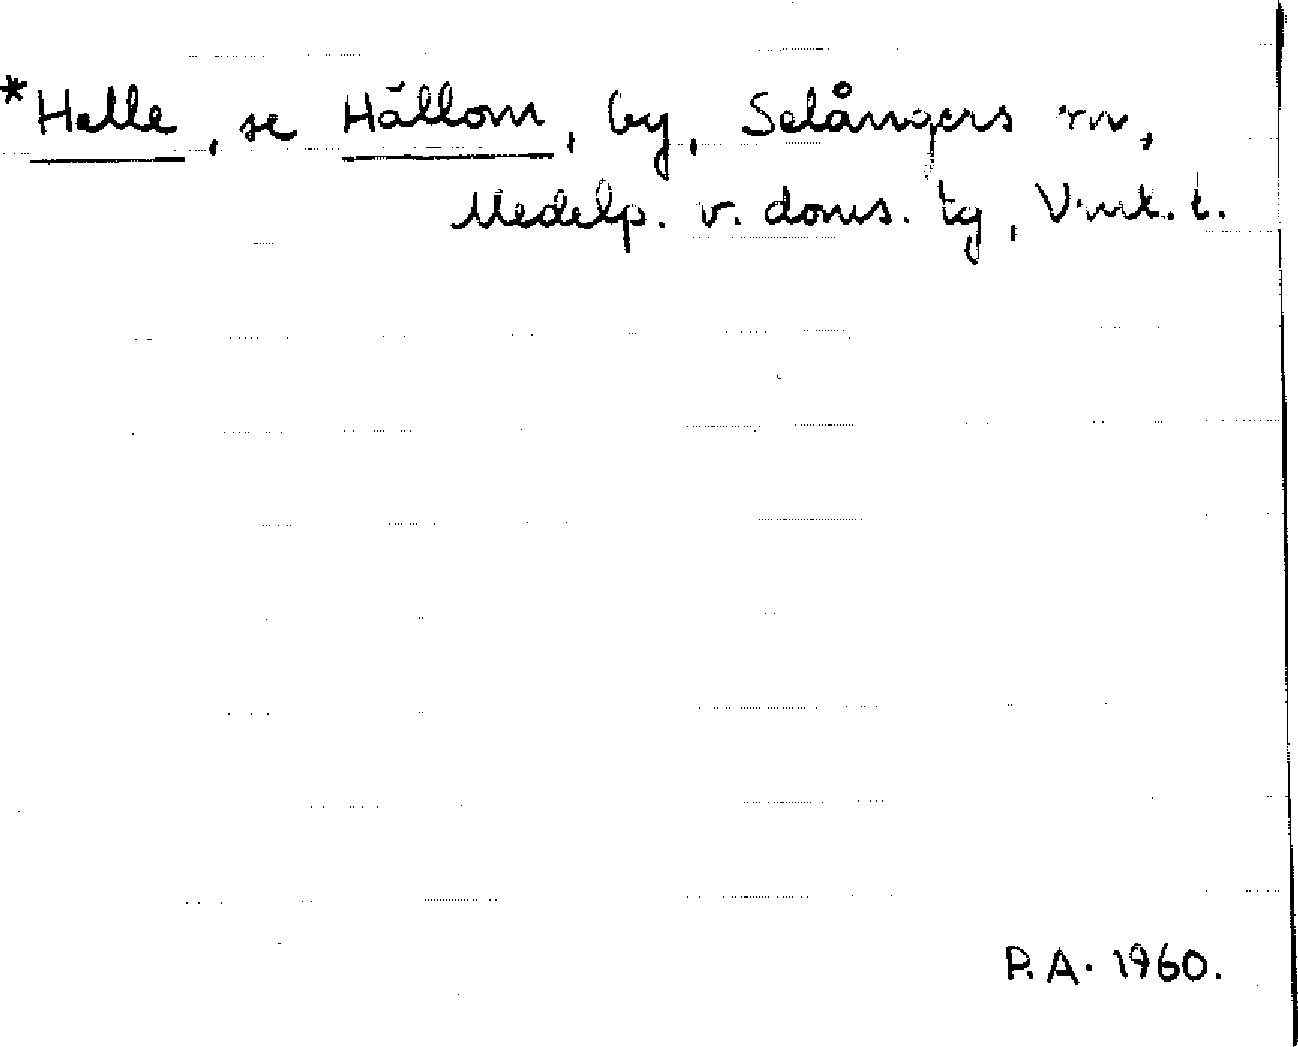 *Helle, se Hällom, by, Selångers sn,
Medelp. v. doms. tg, Vnrl. l.
P.A. 1960.